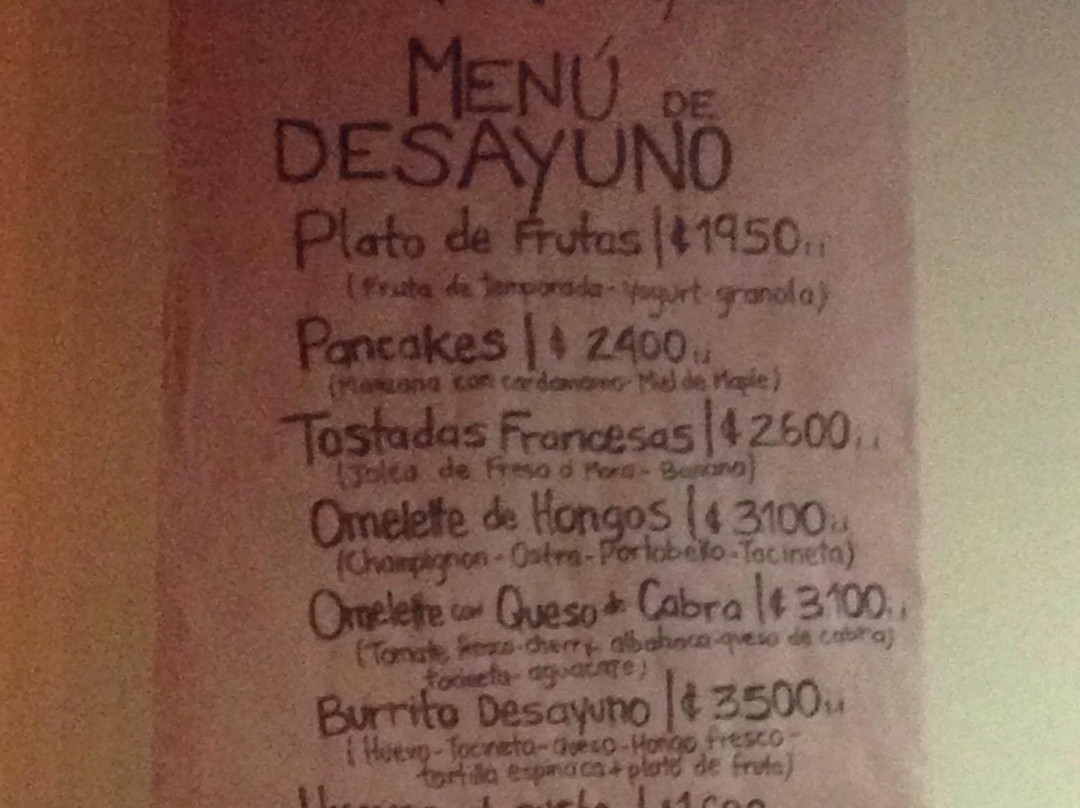 MENÚ DE
DESAYUNO
Plato de Frutas | ₡1950,,
(Fruta de Temporada - Yogurt - granola)
Pancakes | ₡ 2400,,
(Manzana con cardamomo - Miel de Maple)
Tostadas Francesas | ₡2600,,
(Jalea de Fresa ó Mora - Banano)
Omelette de Hongos | ₡ 3100,,
(Champignon - Ostra - Portobello - Tocineta)
Omelette con Queso de Cabra | ₡ 3100,,
(Tomate fresco - cherry, albahaca - queso de cabra,
tocineta - aguacate)
Burrito Desayuno | ₡ 3500,,
(Huevo - Tocineta - Queso - Hongo fresco -
tortilla espinaca + plato de fruta)